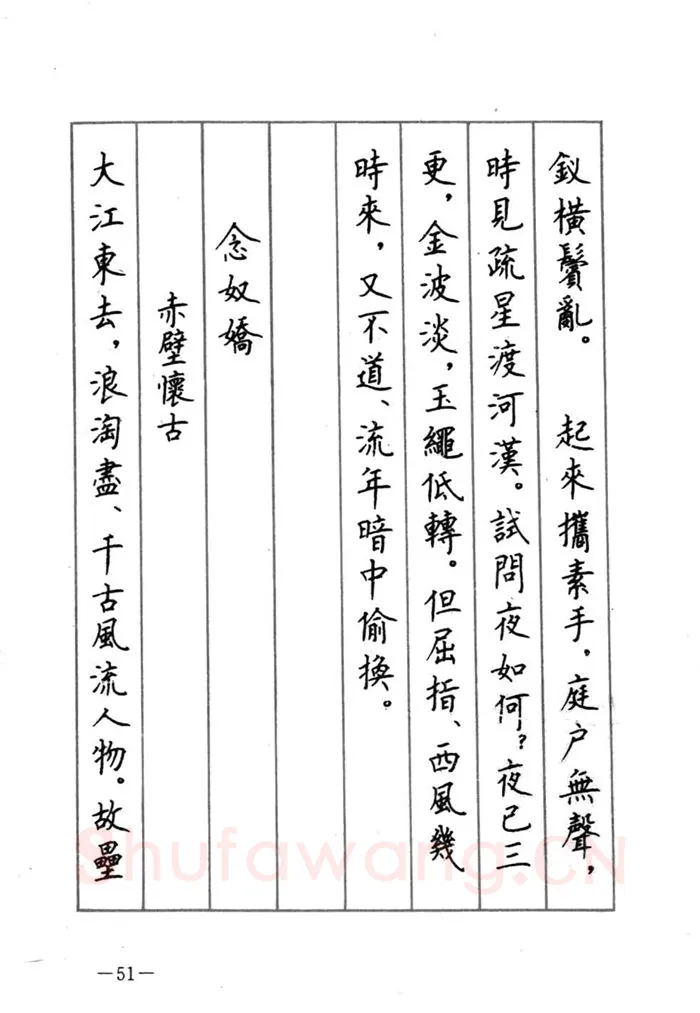 釵橫鬢亂。　起來攜素手，庭户無聲，
時見疏星渡河漢。試問夜如何？夜已三
更，金波淡，玉繩低轉。但屈指、西風幾
時來，又不道、流年暗中偷換。
念奴嬌
赤壁懷古
大江東去，浪淘盡、千古風流人物。故壘
Shufawang.CN
—51—